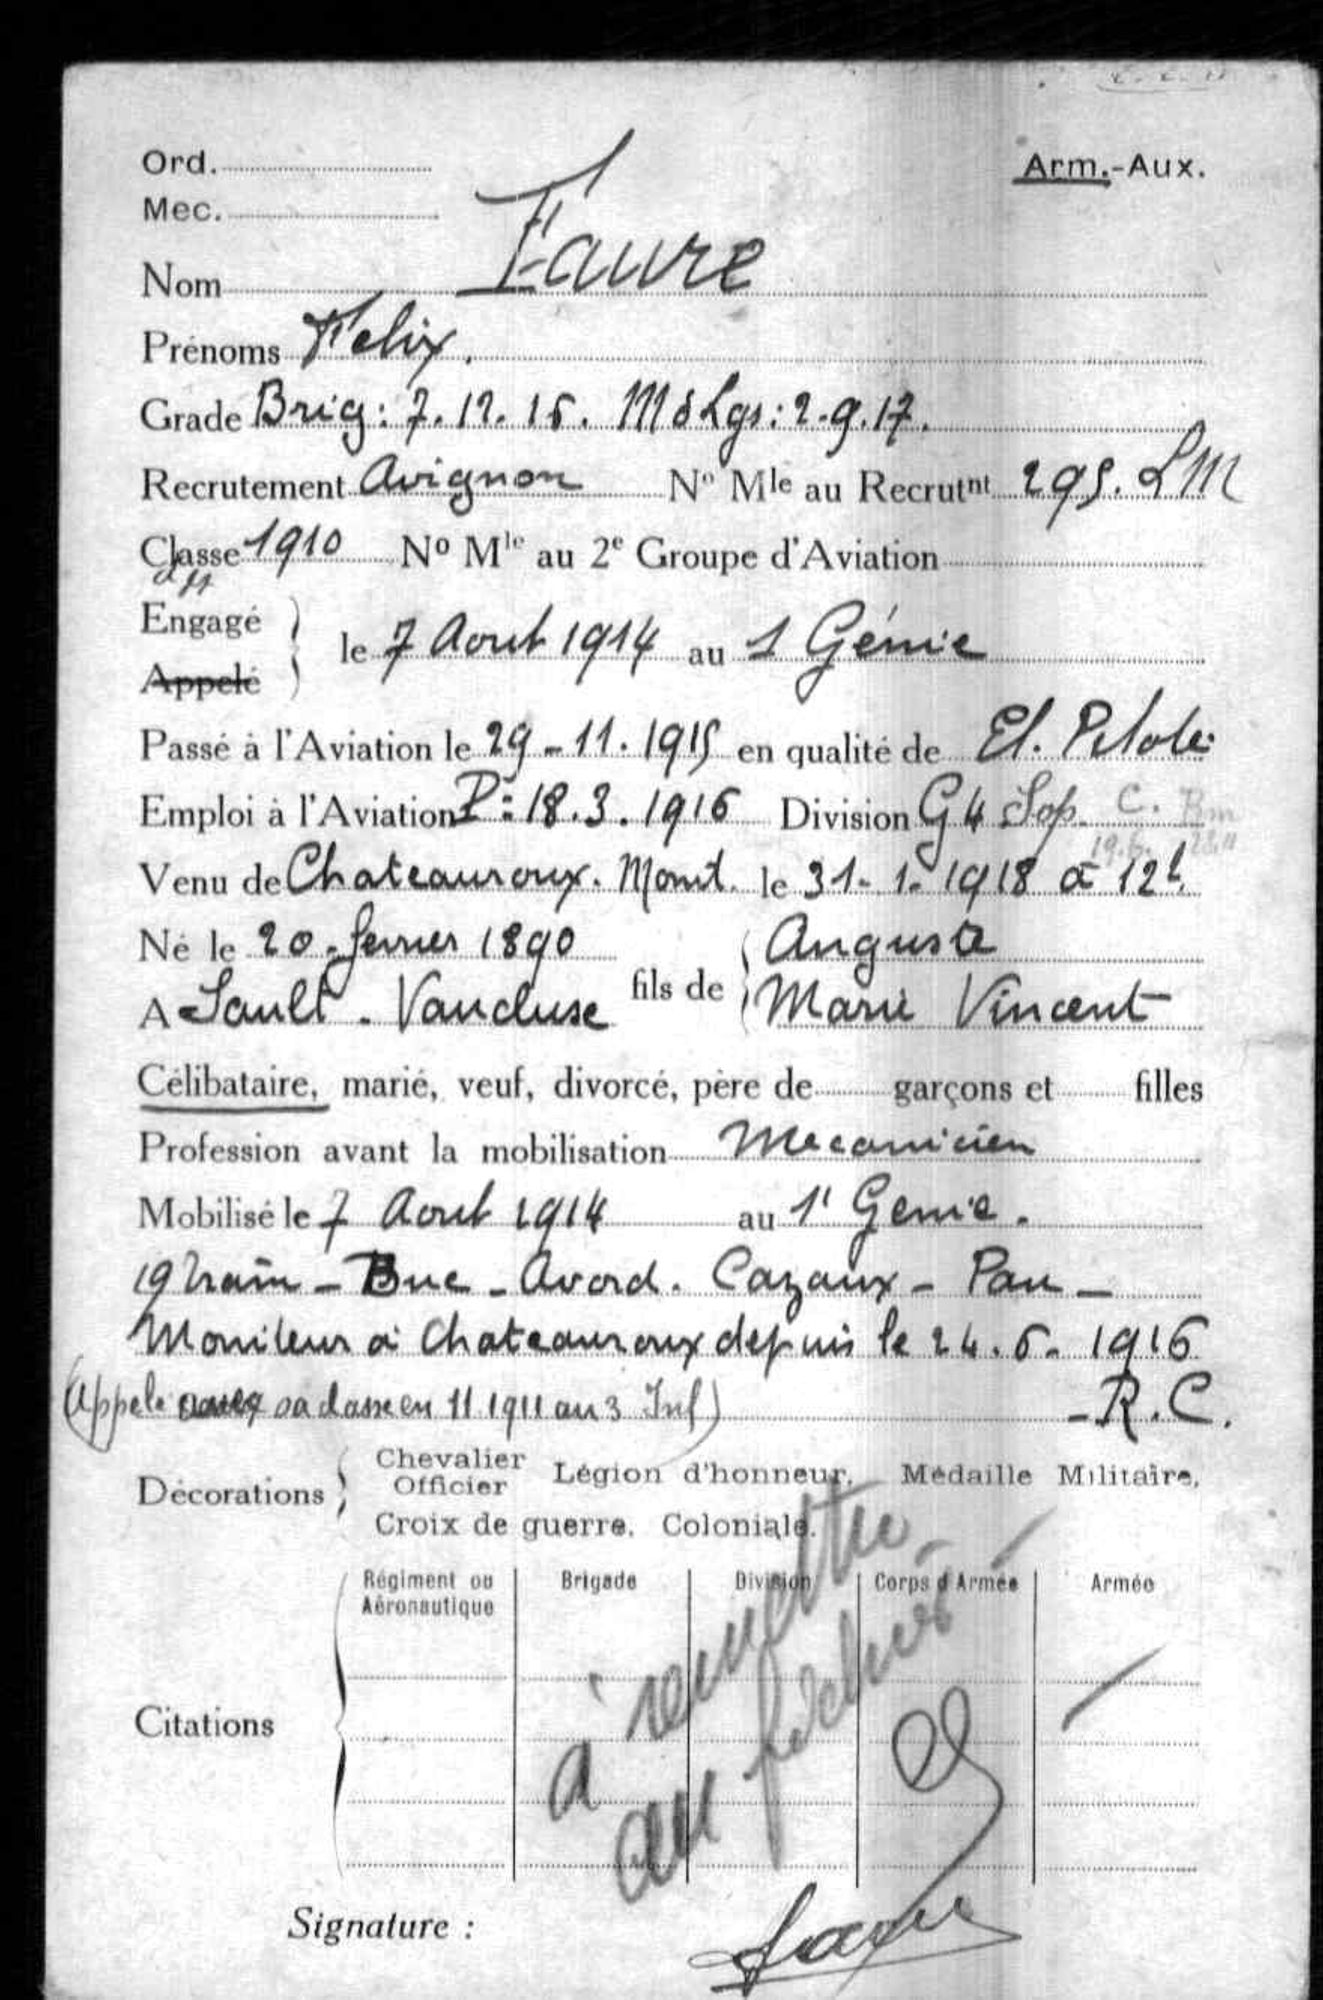 Ord.
Arm.-Aux.
Mec.
Nom Faure
Prénoms Felix.
Grade Brig: 7.12.15. MdLgs: 2.9.17.
Recrutement Avignon No Mle au Recrutnt 295. LM
Classe 1910 No Mle au 2e Groupe d'Aviation
Engagé
Appelé
le 7 Aout 1914 au 1 Génie
Passé à l'Aviation le 29-11.1915 en qualité de El. Pilote
Emploi à l'Aviation P: 18.3.1916 Division G4 Sop. C. Bm
19.6.
Venu de Chateauroux. Mont. le 31-1-1918 à 12h
Né le 20 fevrier 1890 fils de Auguste
A Sault - Vaucluse Marie Vincent
Célibataire, marié, veuf, divorcé, père de garçons et filles
Profession avant la mobilisation Mecanicien
Mobilisé le 7 Aout 1914 au 1' Genie.
19 train - Buc - Avord. Cazaux - Pau -
Moniteur à Chateauroux depuis le 24.6.1916
(appelé avec sa classe en 11 1911 au 3 Inf) - R.C.
Décorations
Chevalier
Officier
Légion d'honneur, Médaille Militaire,
Croix de guerre, Coloniale.
Citations
Régiment ou Aéronautique
Brigade
Division
Corps d'Armée
Armée
à remettre
au fichier
Signature :
Faure